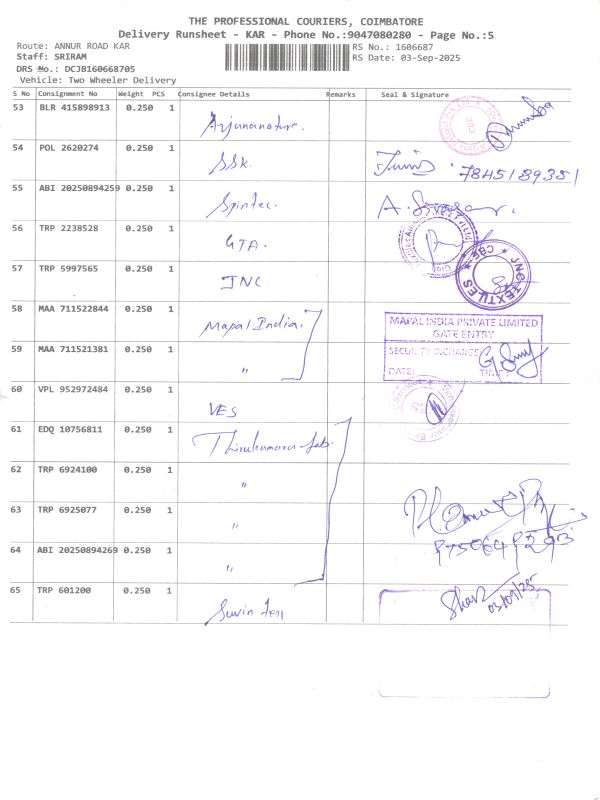 THE PROFESSIONAL COURIERS, COIMBATORE
Delivery Runsheet - KAR - Phone No.:9047080280 - Page No.:5
Route: ANNUR ROAD KAR
RS No.: 1606687
Staff: SRIRAM
RS Date: 03-Sep-2025
DRS No.: DCJB160668705
Vehicle: Two Wheeler Delivery
S No Consignment No Weight PCS Consignee Details Remarks Seal & Signature
53 BLR 415898913 0.250 1
Arjunanature.
54 POL 2620274 0.250 1
SSK. 7845189351
55 ABI 20250894259 0.250 1
Spintec.
56 TRP 2238528 0.250 1
GTA.
57 TRP 5997565 0.250 1
JNC JNG TEXTILES CBE
58 MAA 711522844 0.250 1
Mapal India. MAPAL INDIA PRIVATE LIMITED
GATE ENTRY
59 MAA 711521381 0.250 1
" SECURITY INCHARGE
DATE: TIME:
60 VPL 952972484 0.250 1
VES
61 EDQ 10756811 0.250 1
62 TRP 6924100 0.250 1
"
63 TRP 6925077 0.250 1
"
64 ABI 20250894269 0.250 1
"
65 TRP 601200 0.250 1
03/09/25